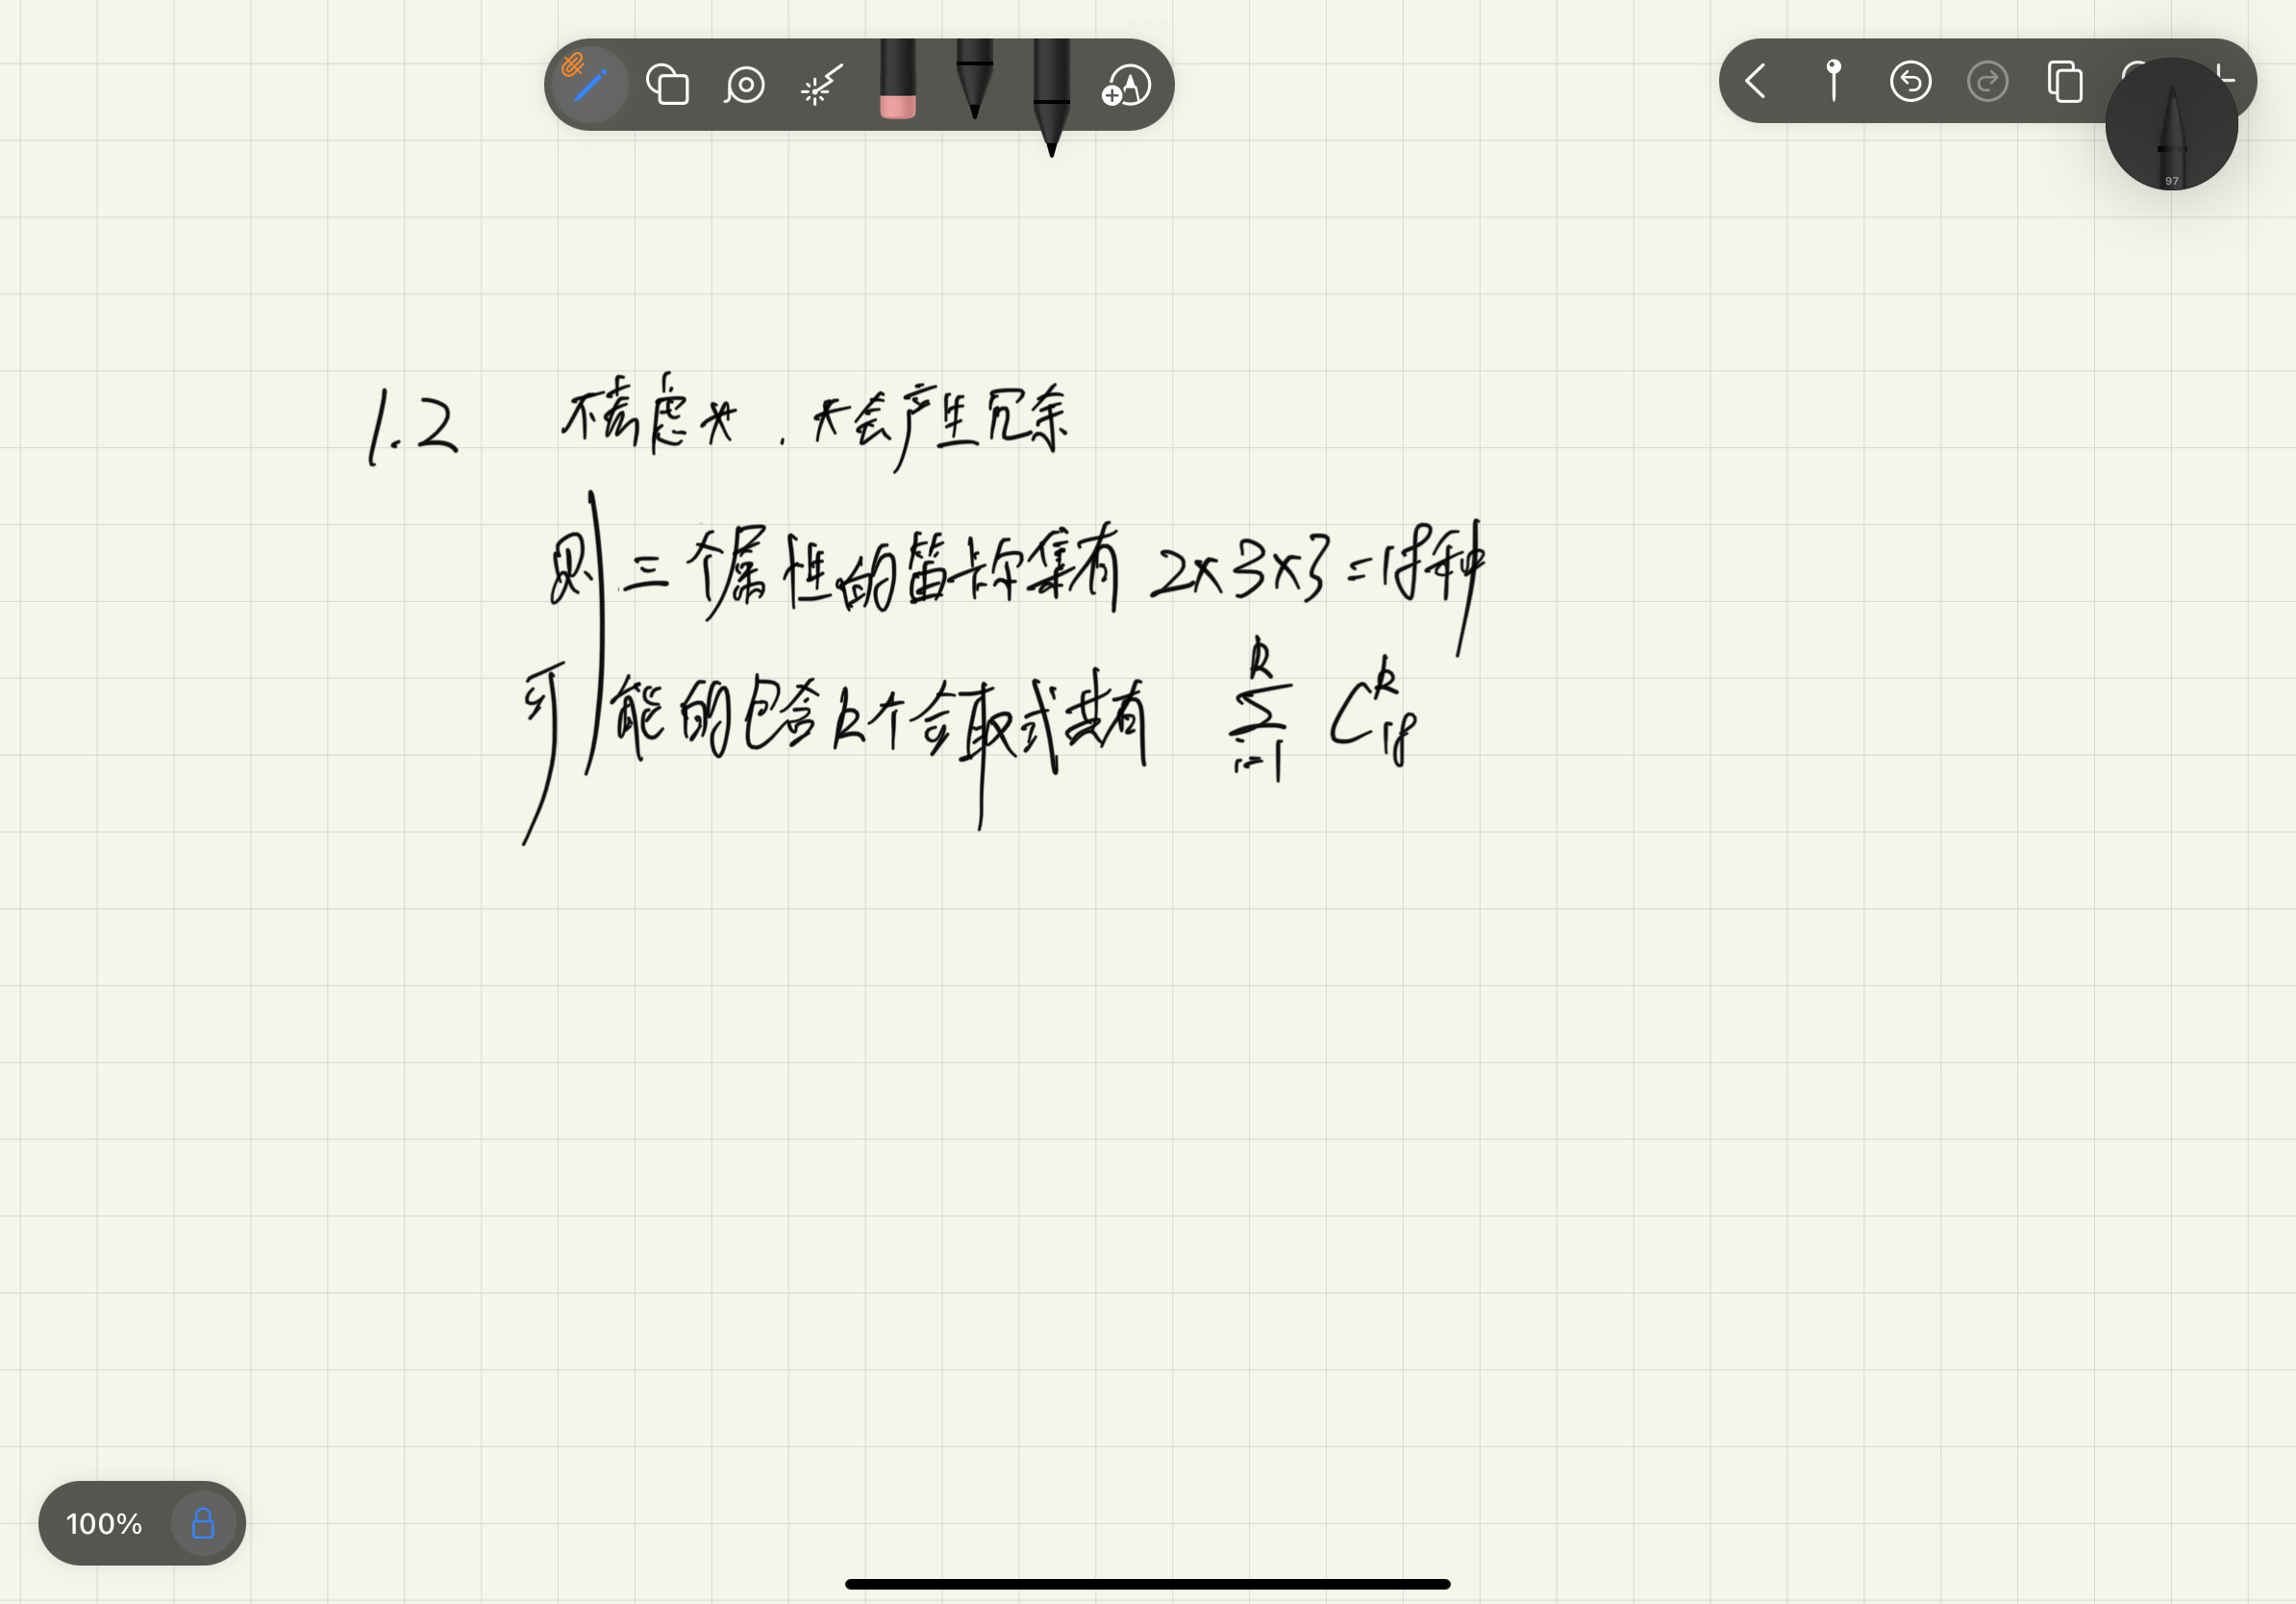 97
1.2 不考虑*. *会产生冗余
则三个属性的笛卡尔集有 2×3×3=18种
可能的包含k个合取式共有 $\sum_{i=1}^{k} C_{18}^{k}$
100%